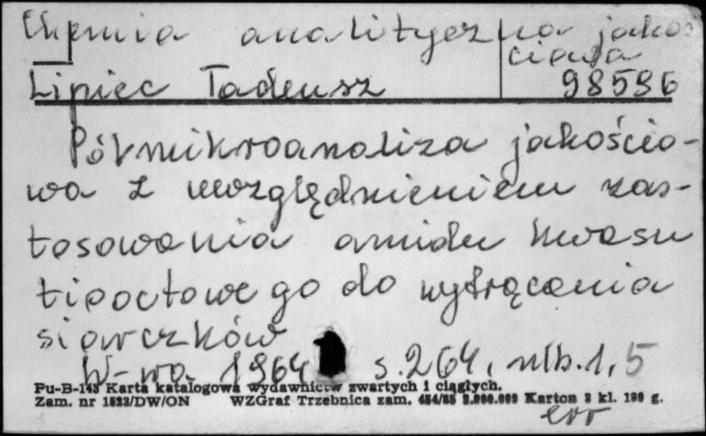 Chemia analityczna jakoś
ciowa
Lipiec Tadeusz 98596
Półmikroanaliza jakościo-
wa z uwzględnieniem zas-
tosowania amidu kwasu
tiooctowego do wytrącania
siarczków
W-wa 1964 s. 264, nlb. 1, 5
Pu-B-143 Karta katalogowa wydawnictw zwartych i ciągłych.
Zam. nr 1523/DW/ON WZGraf Trzebnica zam. 454/85 2.000.000 Karton 3 kl. 180 g.